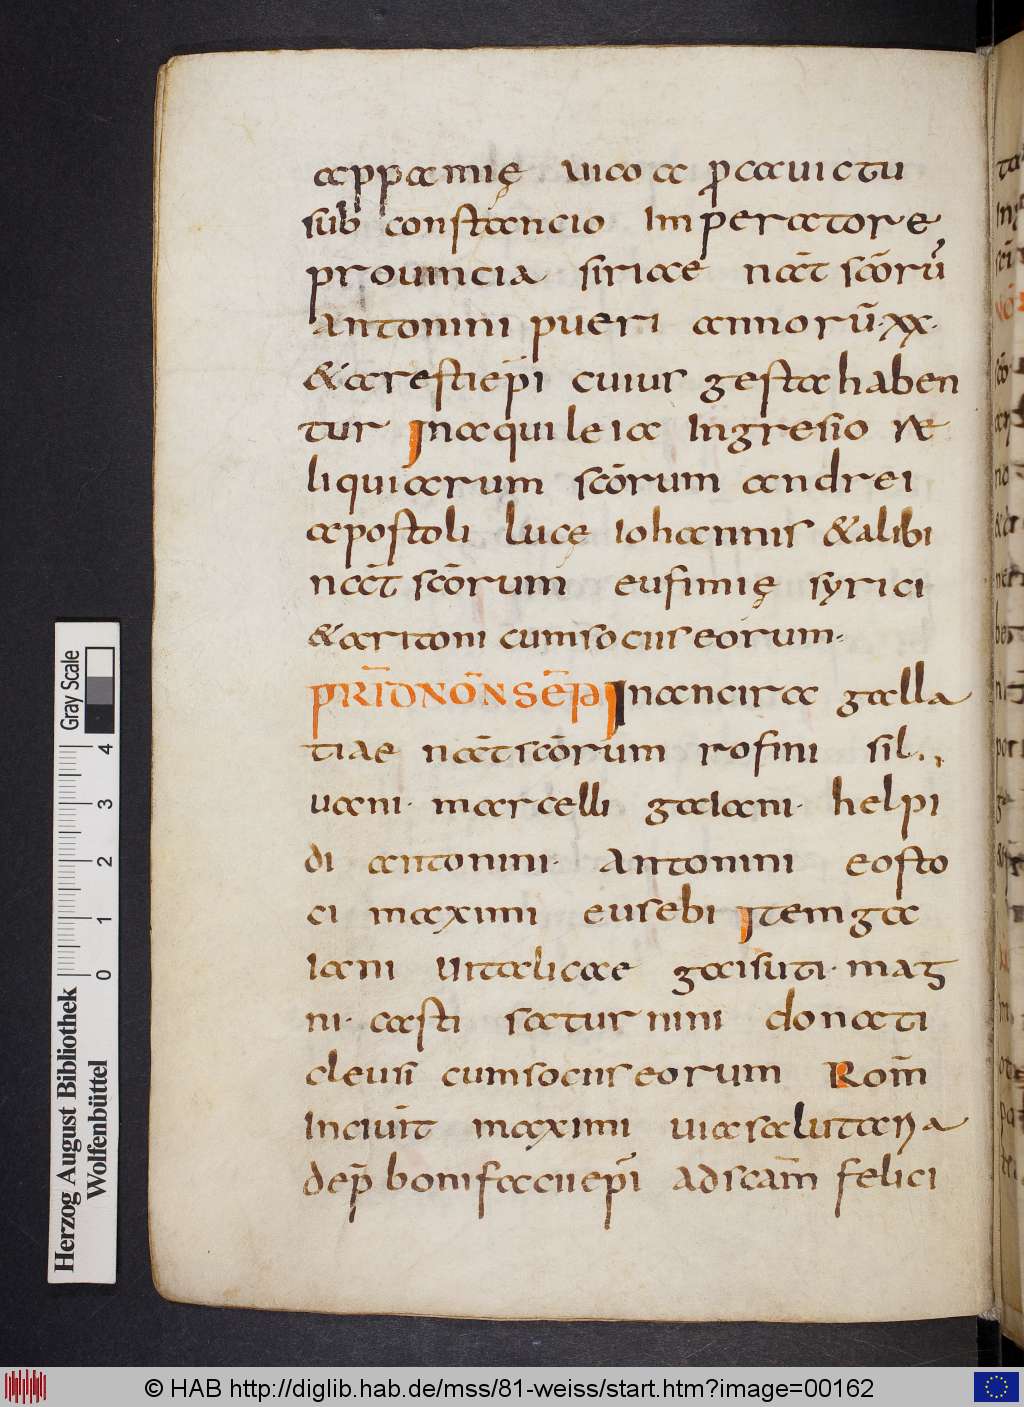 appamię uico a p̄cauictu
sub constancio Imperatore
prouincia siriae nat̄ scōrū
antonini pueri annorū·xx·
&arestiep̄i cuius gesta haben
tur Inaquileia Ingresio re
liquiarum scōrum andrei
apostoli lucę iohannis &alibi
nat̄ scōrum eufimię syrici
&aritoni cumsociiseorum·
PRĪDNŌNSĒP Inancira galla
tiae nat̄scōrum rofini sil
uani· marcelli gaiani· helpi
di antonini· antonini eosto
ci maximi eusebi Itemga
iani uitalicae gaisuti· mag
ni· casti saturnini donati
cleusi cumsociiseorum Rom̄
Inciuit̄ maximi uiasalutaria
dep̄ bonifaciiep̄i adscam̄ felici
Gray Scale
4 3 2 1 0
Herzog August Bibliothek
Wolfenbüttel
© HAB http://diglib.hab.de/mss/81-weiss/start.htm?image=00162